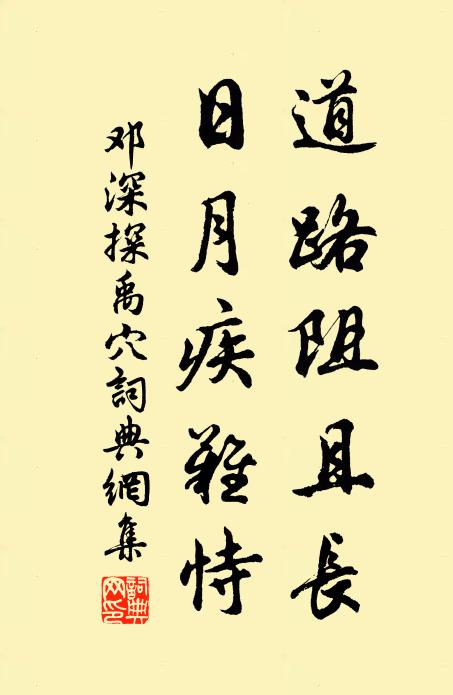 道路阻且長
日月疾難恃
邓深探禹穴詞典網集
詞典